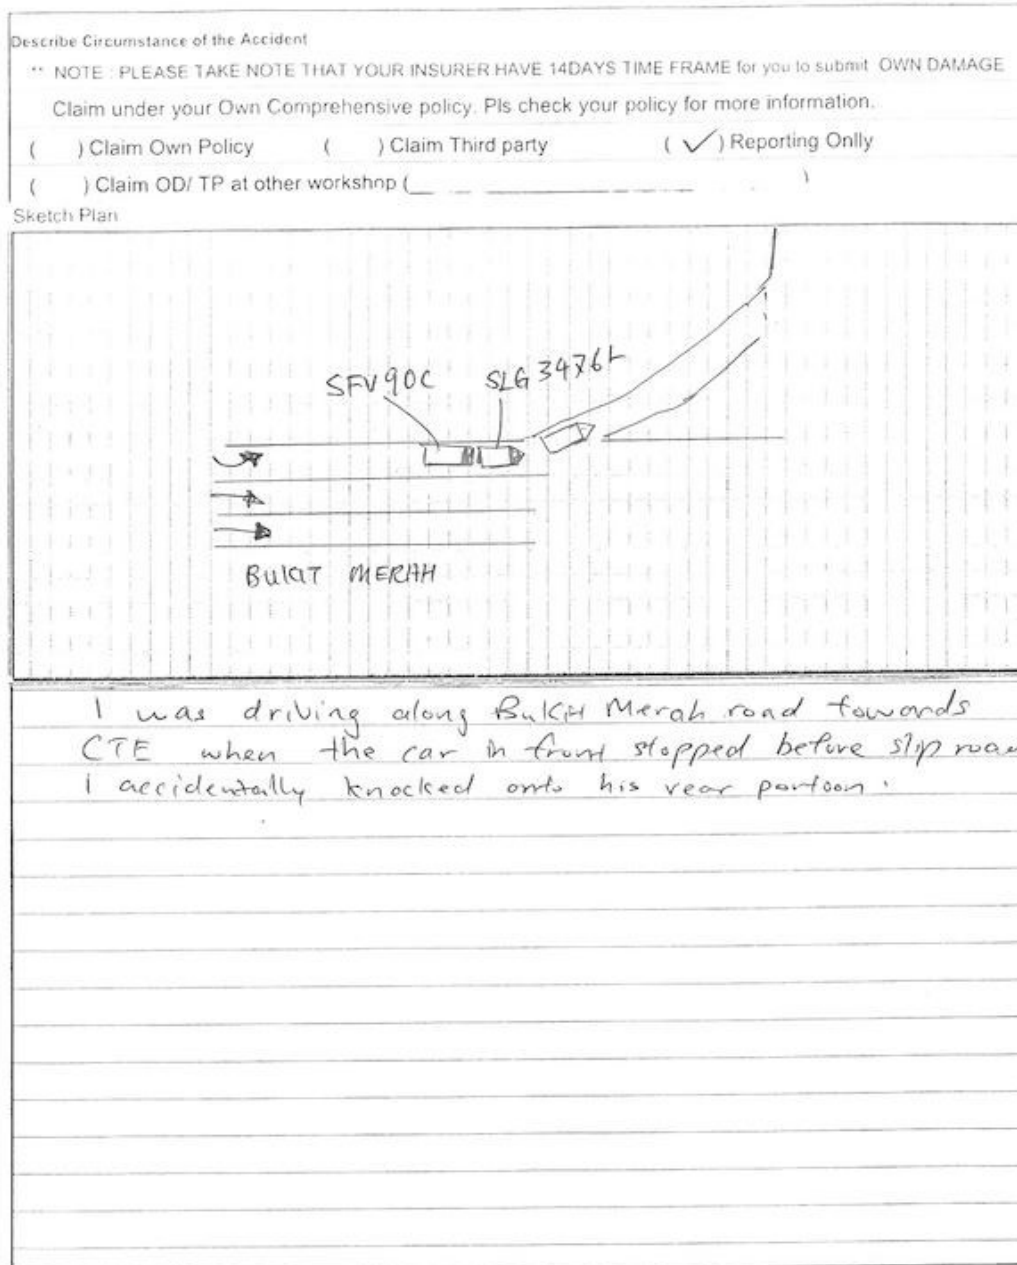 Describe Circumstance of the Accident
** NOTE : PLEASE TAKE NOTE THAT YOUR INSURER HAVE 14DAYS TIME FRAME for you to submit OWN DAMAGE
Claim under your Own Comprehensive policy. Pls check your policy for more information.
( ) Claim Own Policy ( ) Claim Third party ( ✓ ) Reporting Onlly
( ) Claim OD/ TP at other workshop ( )
Sketch Plan
SFV90C SLG
BUKIT MERAH
I was driving along Bukit Merah road towards
CTE when the car in front stopped before slip road
I accidentally knocked onto his rear portoon.